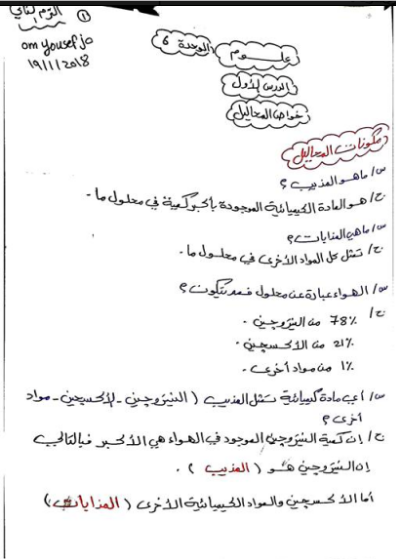 الترم الثاني
١
om yousef jo
١٩/١/٢٠١٨
علوم الوحدة 6
الدرس الأول
خواص المحاليل
مكونات المحاليل
س/ ما هو المذيب ؟
ج/ هو المادة الكيميائية الموجودة بأكبر كمية في محلول ما .
س/ ما هي المذابات ؟
ج/ تمثل كل المواد الأخرى في محلول ما .
س/ الهواء عبارة عن محلول فمم يتكون ؟
ج/ 78٪ من النيتروجين .
21٪ من الأكسجين .
1٪ من مواد أخرى .
س/ أي مادة كيميائية تمثل المذيب ( النيتروجين - الأكسجين - مواد
أخرى ؟
ج/ إن كمية النيتروجين الموجود في الهواء هي الأكبر فبالتالي
إن النيتروجين هو ( المذيب ) .
أما الأكسجين والمواد الكيميائية الأخرى ( المذابات )